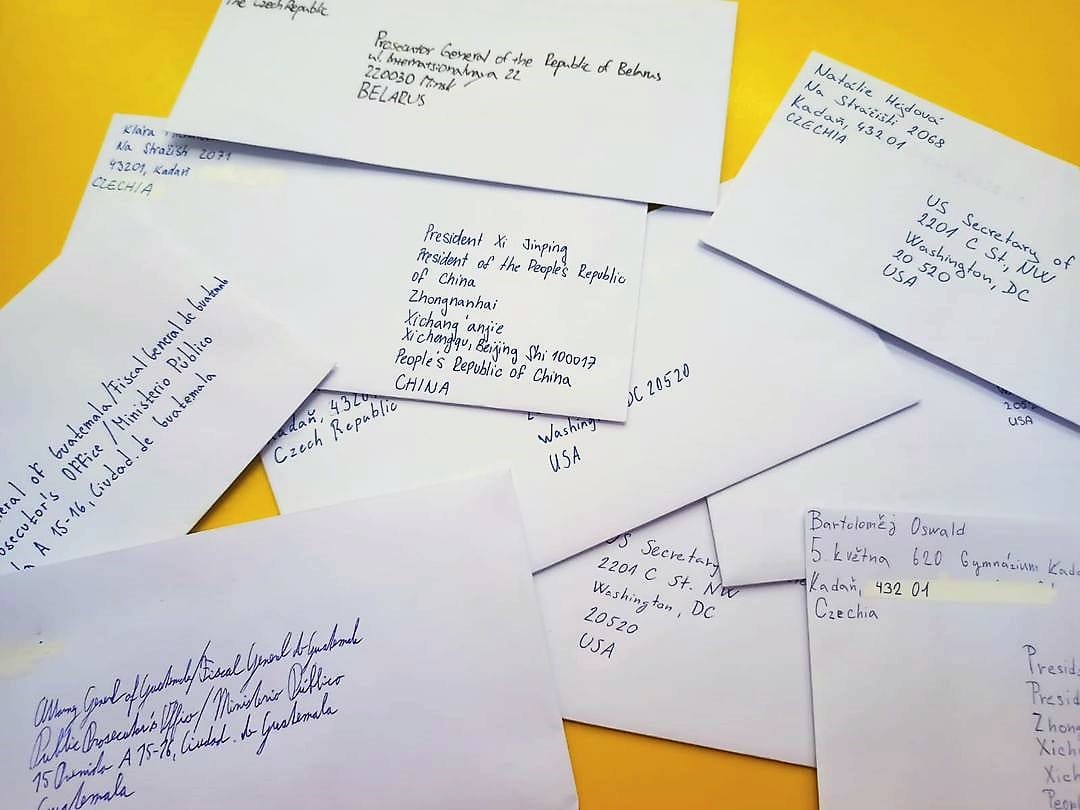 The Czech Republic
Prosecutor General of the Republic of Belarus
ul. Internatsionalnaya 22
220030 Minsk
BELARUS
Natálie Hejdová
Na Strážišti 2068
Kadaň, 432 01
CZECHIA
US Secretary of
2201 C St., NW
Washington, DC
20 520
USA
Klára
Na Strážišti 2071
43201, Kadaň
CZECHIA
President Xi Jinping
President of the People's Republic
of China
Zhongnanhai
Xichang'anjie
Xichengqu, Beijing Shi 100017
People's Republic of China
CHINA
General of Guatemala/Fiscal General de Guatemala
Prosecutor's Office / Ministerio Público
A 15-16, Ciudad de Guatemala
Kadaň, 432
Czech Republic
Washing DC 20520
USA
USA
US Secretary
2201 C St. NW
Washington, DC
20520
USA
Bartoloměj Oswald
5. května 620 Gymnázium Kada
Kadaň, 432 01
Czechia
Presid
Presid
Zhong
Xich
Xich
Peop
Attorney General of Guatemala/Fiscal General de Guatemala
Public Prosecutor's Office / Ministerio Público
15 Avenida A 15-16, Ciudad de Guatemala
Guatemala